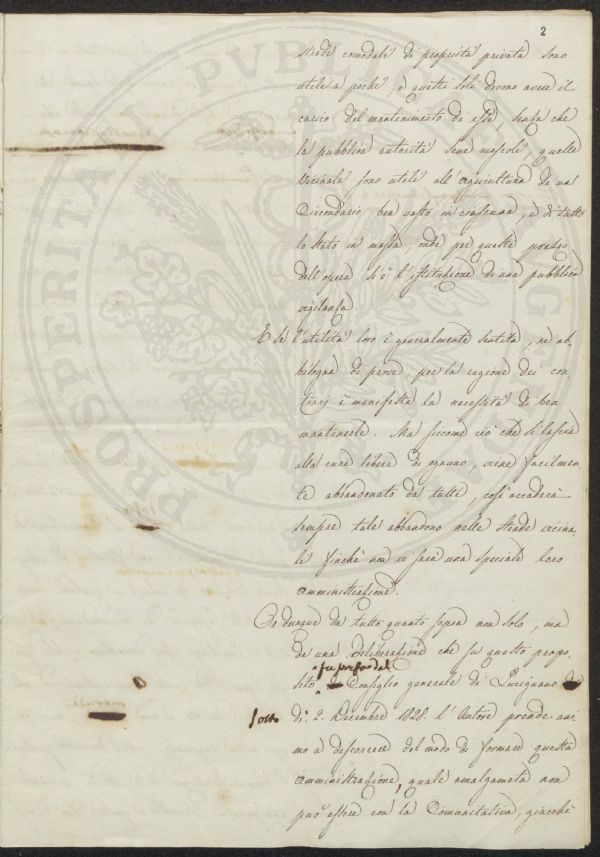 2
strade comodali di proprietà privata sono
utili a pochi, e questi soli devono avere il
carico del mantenimento di esse, senza che
la pubblica autorità sene mescoli, quelle
vicinali sono utili all'agricultura di un
Circondario ben vasto in ciascuna, e di tutto
lo Stato in massa, onde per queste
dell'opera si è l'istituzione di una pubblica
vigilanza.
E se l'utilità loro è generalmente sentita, nè ab,
bisogna di prove, per la ragione dei con,
trarj è manifesta la necessità di ben
mantenerle. Ma siccome ciò che si lascia
alla cura libera di ognuno, viene facilmen,
te abbandonato da tutti, così accaderà
sempre tale abbandono nelle strade vicina,
li finchè non vi sarà una speciale loro
amministrazione.
Or dunque da tutto quanto sopra non solo, ma
da una deliberazione che su questo propo,
su presa dal
sito Consiglio generale di Lucignano
sotto dì. 2. Decembre 1828. l'Autore prende ani
mo a discorrere del modo di formare questa
amministrazione, quale amalgamata non
può essere con la Comunitativa, giacchè
PROSPERITÀ PUBLICAE AUGENDAE